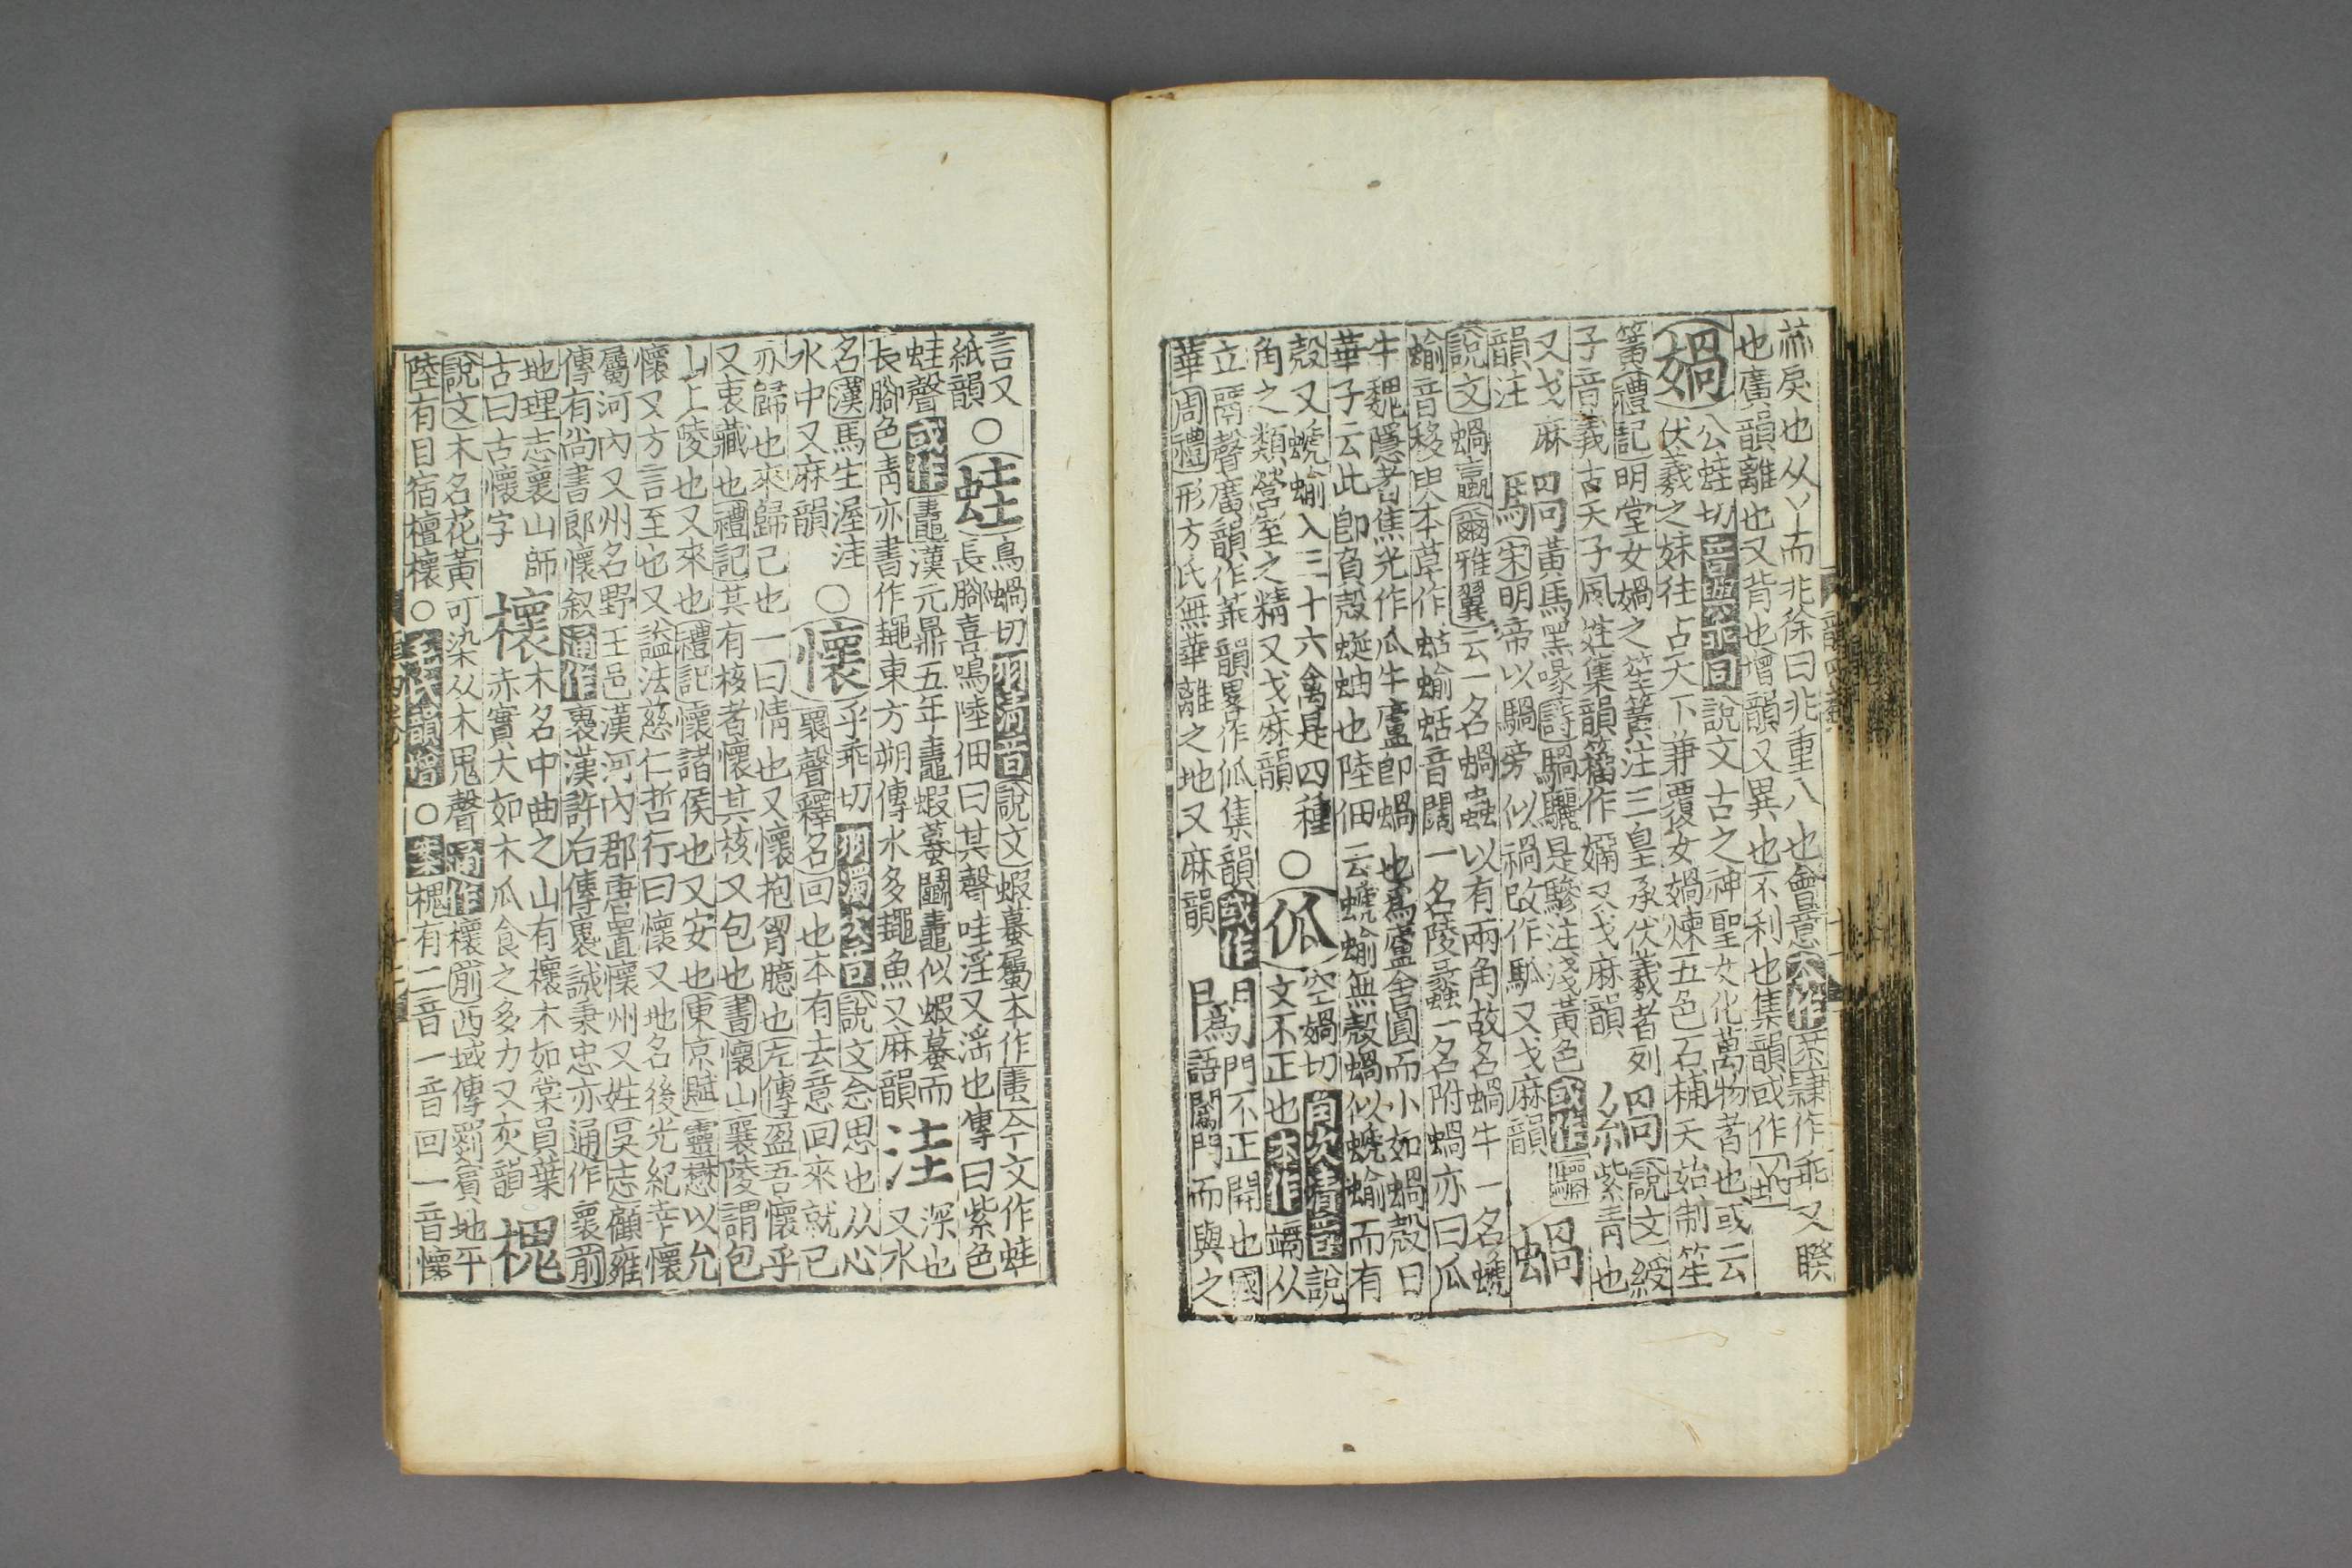 𦮃戾也从丫而兆徐曰兆重八也會意𠔁作乖隷作乖又睽
也廣韻離也又背也增韻又異也不利也集韻或作
媧
公蛙切音與瓜同說文古之神聖女化萬物者也或云
伏羲之妹徃占天下兼覆女媧煉五色石補天始制笙
簧禮記明堂女媧之笙簧注三皇承伏羲者列
子音義古天子風姓集韻籀作㛻又戈麻韻
緺
說文綬
紫青也
又戈麻
韻注
騧
黃馬黑喙詩騧驪是驂注淺黃色或作䯄
宋明帝以騧旁似禍改作䯄又戈麻韻
蝸
說文蝸蠃爾雅翼云一名蝸蟲以有兩角故名蝸牛一名螔
蝓音移臾本草作蛞蝓蛞音闊一名陵蠡一名附蝸亦曰瓜
牛魏隱者焦光作瓜牛廬卽蝸也爲廬舍圓而小如蝸殼曰
華子云此卽負殼蜒蚰也陸佃云螔蝓無殼蝸似螔蝓而有
殼又螔蝓入三十六禽是四種
角之類營室之精又戈麻韻
○
㧓
空媧切角次清音說
文不正也本作竵从
立𤔔聲廣韻作𠌥韻畧作㧓集韻或作
華周禮形方氏無華離之地又麻韻
闖
門不正開也國
語闔門而與之
言又
紙韻
○
蛙
烏蝸切羽清音說文蝦蟇屬本作鼃今文作蛙
長腳喜鳴陸佃曰其聲哇淫又淫也傳曰紫色
蛙聲或作鼃漢元鼎五年鼃蝦蟇鬭鼃似蝦蟇而
長腳色青亦書作䵷東方朔傳水多䵷魚又麻韻
洼
深也
又水
名漢馬生渥洼
水中又麻韻
○
懷
乎乖切羽濁音說文念思也从心
褱聲釋名回也本有去意回來就已
亦歸也來歸己也一曰情也又懷抱胷臆也左傳盈吾懷乎
又衷藏也禮記其有核者懷其核又包也書懷山襄陵謂包
山上陵也又來也禮記懷諸侯也又安也東京賦靈懋以允
懷又方言至也又謚法慈仁哲行曰懷又地名後光紀幸懷
屬河內又州名野王邑漢河內郡唐置懷州又姓吳志顧雍
傳有尚書郎懷叙通作褱漢許后傳褱誠秉忠亦通作褢前
地理志褱山師
古曰古懷字
櫰
木名中曲之山有櫰木如棠員葉
赤實大如木瓜食之多力又灰韻
槐
說文木名花黃可染从木鬼聲通作櫰前西域傳罽賓地平
陸有目宿檀櫰○毛氏韻增○案槐有二音一音回一音懷